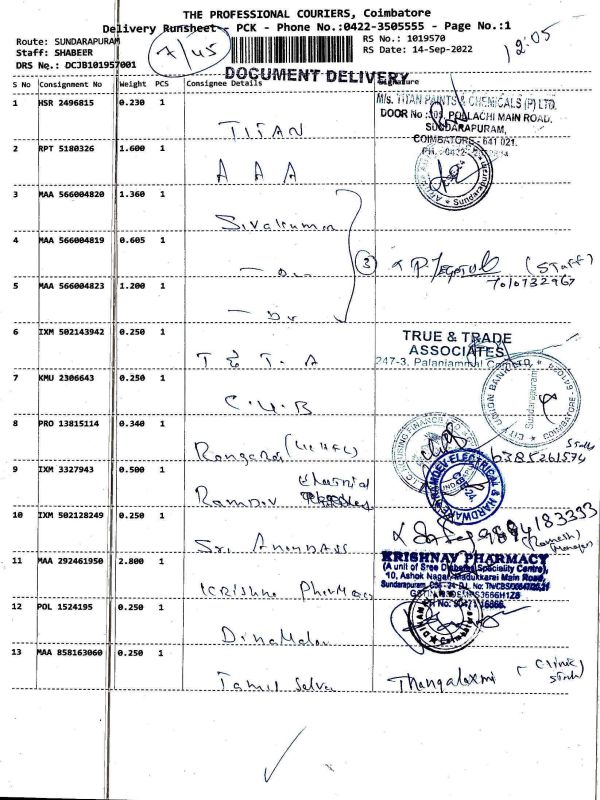 THE PROFESSIONAL COURIERS, Coimbatore
Delivery Runsheet - PCK - Phone No.:0422-3505555 - Page No.:1
Route: SUNDARAPURAM
RS No.: 1019570
Staff: SHABEER
RS Date: 14-Sep-2022
DRS No.: DCJB101957001
7/45
12:05
DOCUMENT DELIVERY
S No Consignment No Weight PCS Consignee Details Signature
1 HSR 2496815 0.230 1 TITAN
M/s. TITAN PAINTS & CHEMICALS (P) LTD.
DOOR No :305, POLLACHI MAIN ROAD.
SUNDARAPURAM,
COIMBATORE - 641 021.
2 RPT 5180326 1.600 1 A A A
3 MAA 566004820 1.360 1 Sivakumar
4 MAA 566004819 0.605 1 - Do -
3 (Staff)
5 MAA 566004823 1.200 1 - Do
6 IXM 502143942 0.250 1 T & T. A
TRUE & TRADE
ASSOCIATES
247-3, Palaniammal
7 KMU 2306643 0.250 1 C.U.B
CITY UNION BANK LTD.
Sundarapuram
COIMBATORE - 641024
8 PRO 13815114 0.340 1
6385261574
9 IXM 3327943 0.500 1 Ramdev
RAMDEV ELECTRICAL & HARDWARE
10 IXM 502128249 0.250 1 Sri
9894183393
(Ramesh)
Manager
11 MAA 292461950 2.800 1 Krishna
KRISHNAV PHARMACY
(A unit of Sree Diabetes Speciality Centre),
10, Ashok Nagar, Madukkarai Main Road,
12 POL 1524195 0.250 1 Dinamalar
13 MAA 858163060 0.250 1 Tamil Selvi
Thangalaxmi (Clinic
Staff)